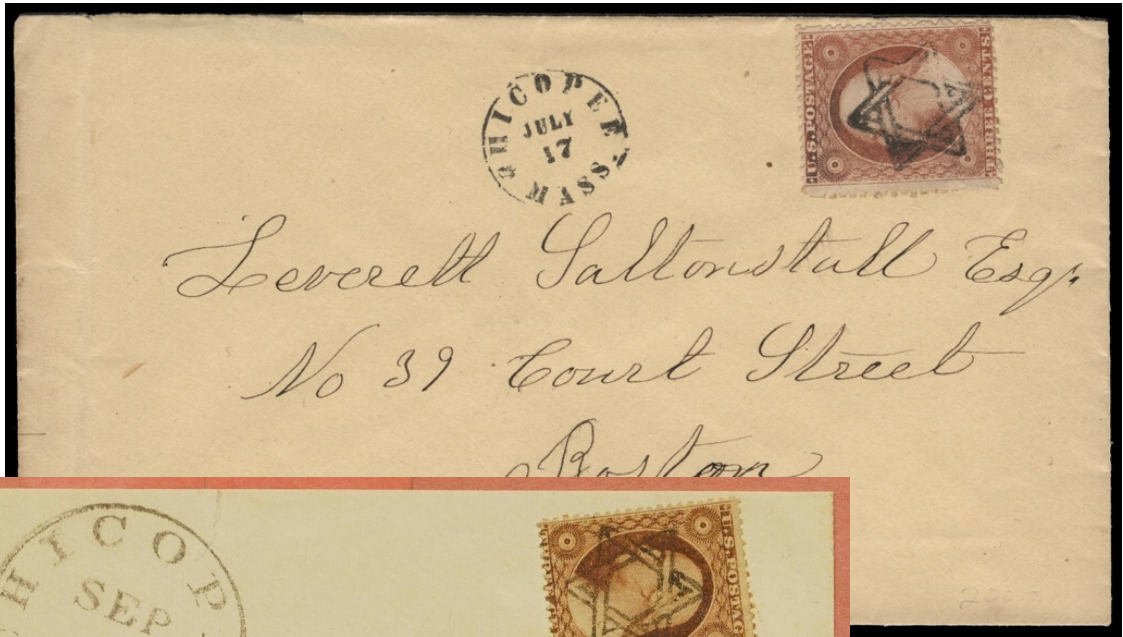 CHICOPEE MASS.
JULY
17
U.S. POSTAGE
THREE CENTS
Leverett Saltonstall Esqr.
No 39 Court Street
Boston
HICOP
SEP
U.S. POSTAG